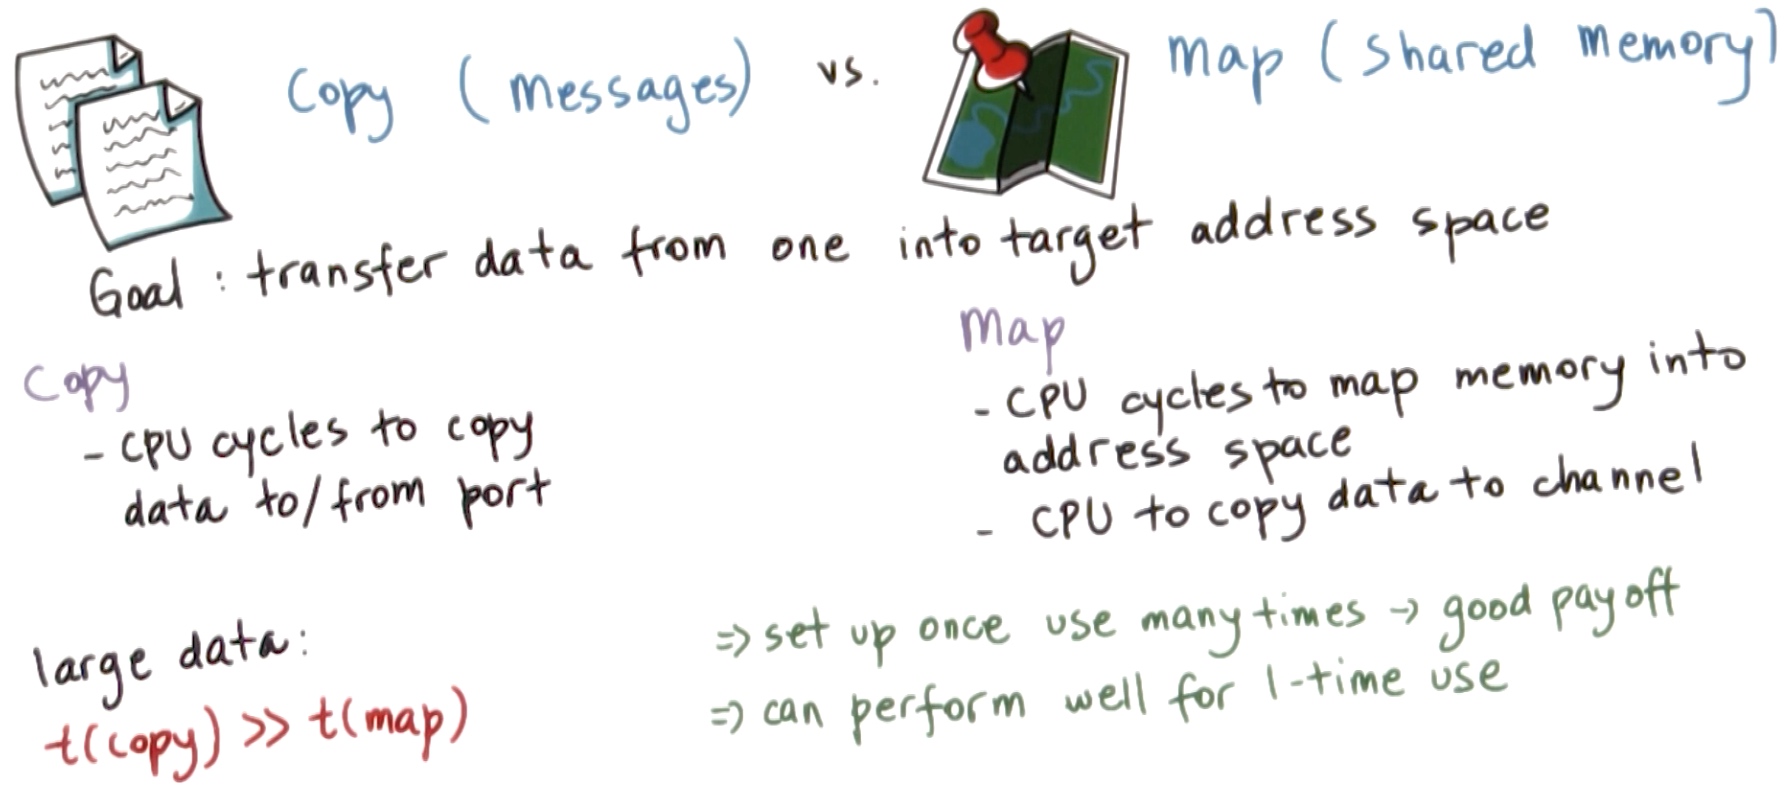 Copy (messages) vs. Map (shared memory)
Goal : transfer data from one into target address space
Copy
- CPU cycles to copy
data to/from port
Map
- CPU cycles to map memory into
address space
- CPU to copy data to channel
large data:
t(copy) >> t(map)
=> set up once use many times → good payoff
=> can perform well for 1-time use